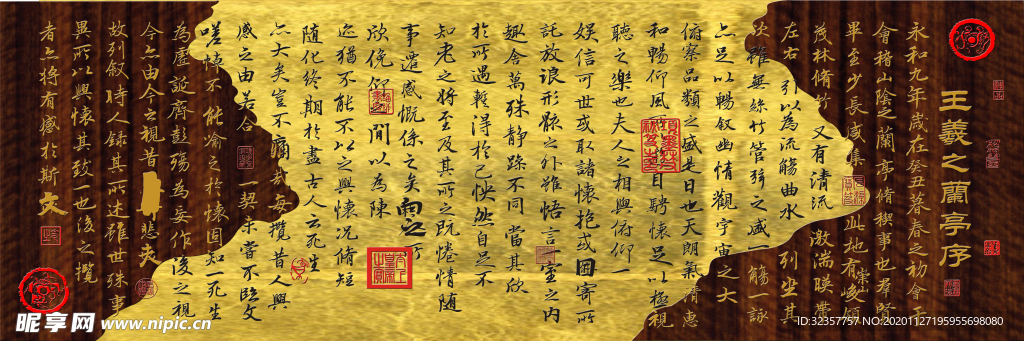 王羲之蘭亭序
永和九年歲在癸丑暮春之初會于
會稽山陰之蘭亭脩稧事也羣賢
畢至少長咸集此地有崇峻領
茂林脩竹又有清流激湍暎帶
左右引以為流觴曲水列坐其
次雖無絲竹管弦之盛一觴一詠
亦足以暢叙幽情觀宇宙之大
俯察品類之盛是日也天朗氣清惠
和暢仰風目騁懷足以極視
聽之樂也夫人之相與俯仰一
娛信可世或取諸懷抱或因寄所
託放浪形骸之外雖悟言室之內
趣舍萬殊静躁不同當其欣
於所遇輕得於己怏然自足不
知老之將至及其所之既惓情隨
事遷感慨係之矣向之所
欣俛仰之間以為陳
迹猶不能不以之興懷況脩短
隨化終期於盡古人云死生
亦大矣豈不痛哉每攬昔人興
感之由若合一契未嘗不臨文
嗟悼不能喻之於懷固知一死生
為虛誕齊彭殤為妄作後之視
今亦由今之視昔悲夫
故列叙時人錄其所述雖世殊事
異所以興懷其致一也後之攬
者亦將有感於斯文
昵享网 www.nipic.cn
ID:32357757 NO:20201127195955698080